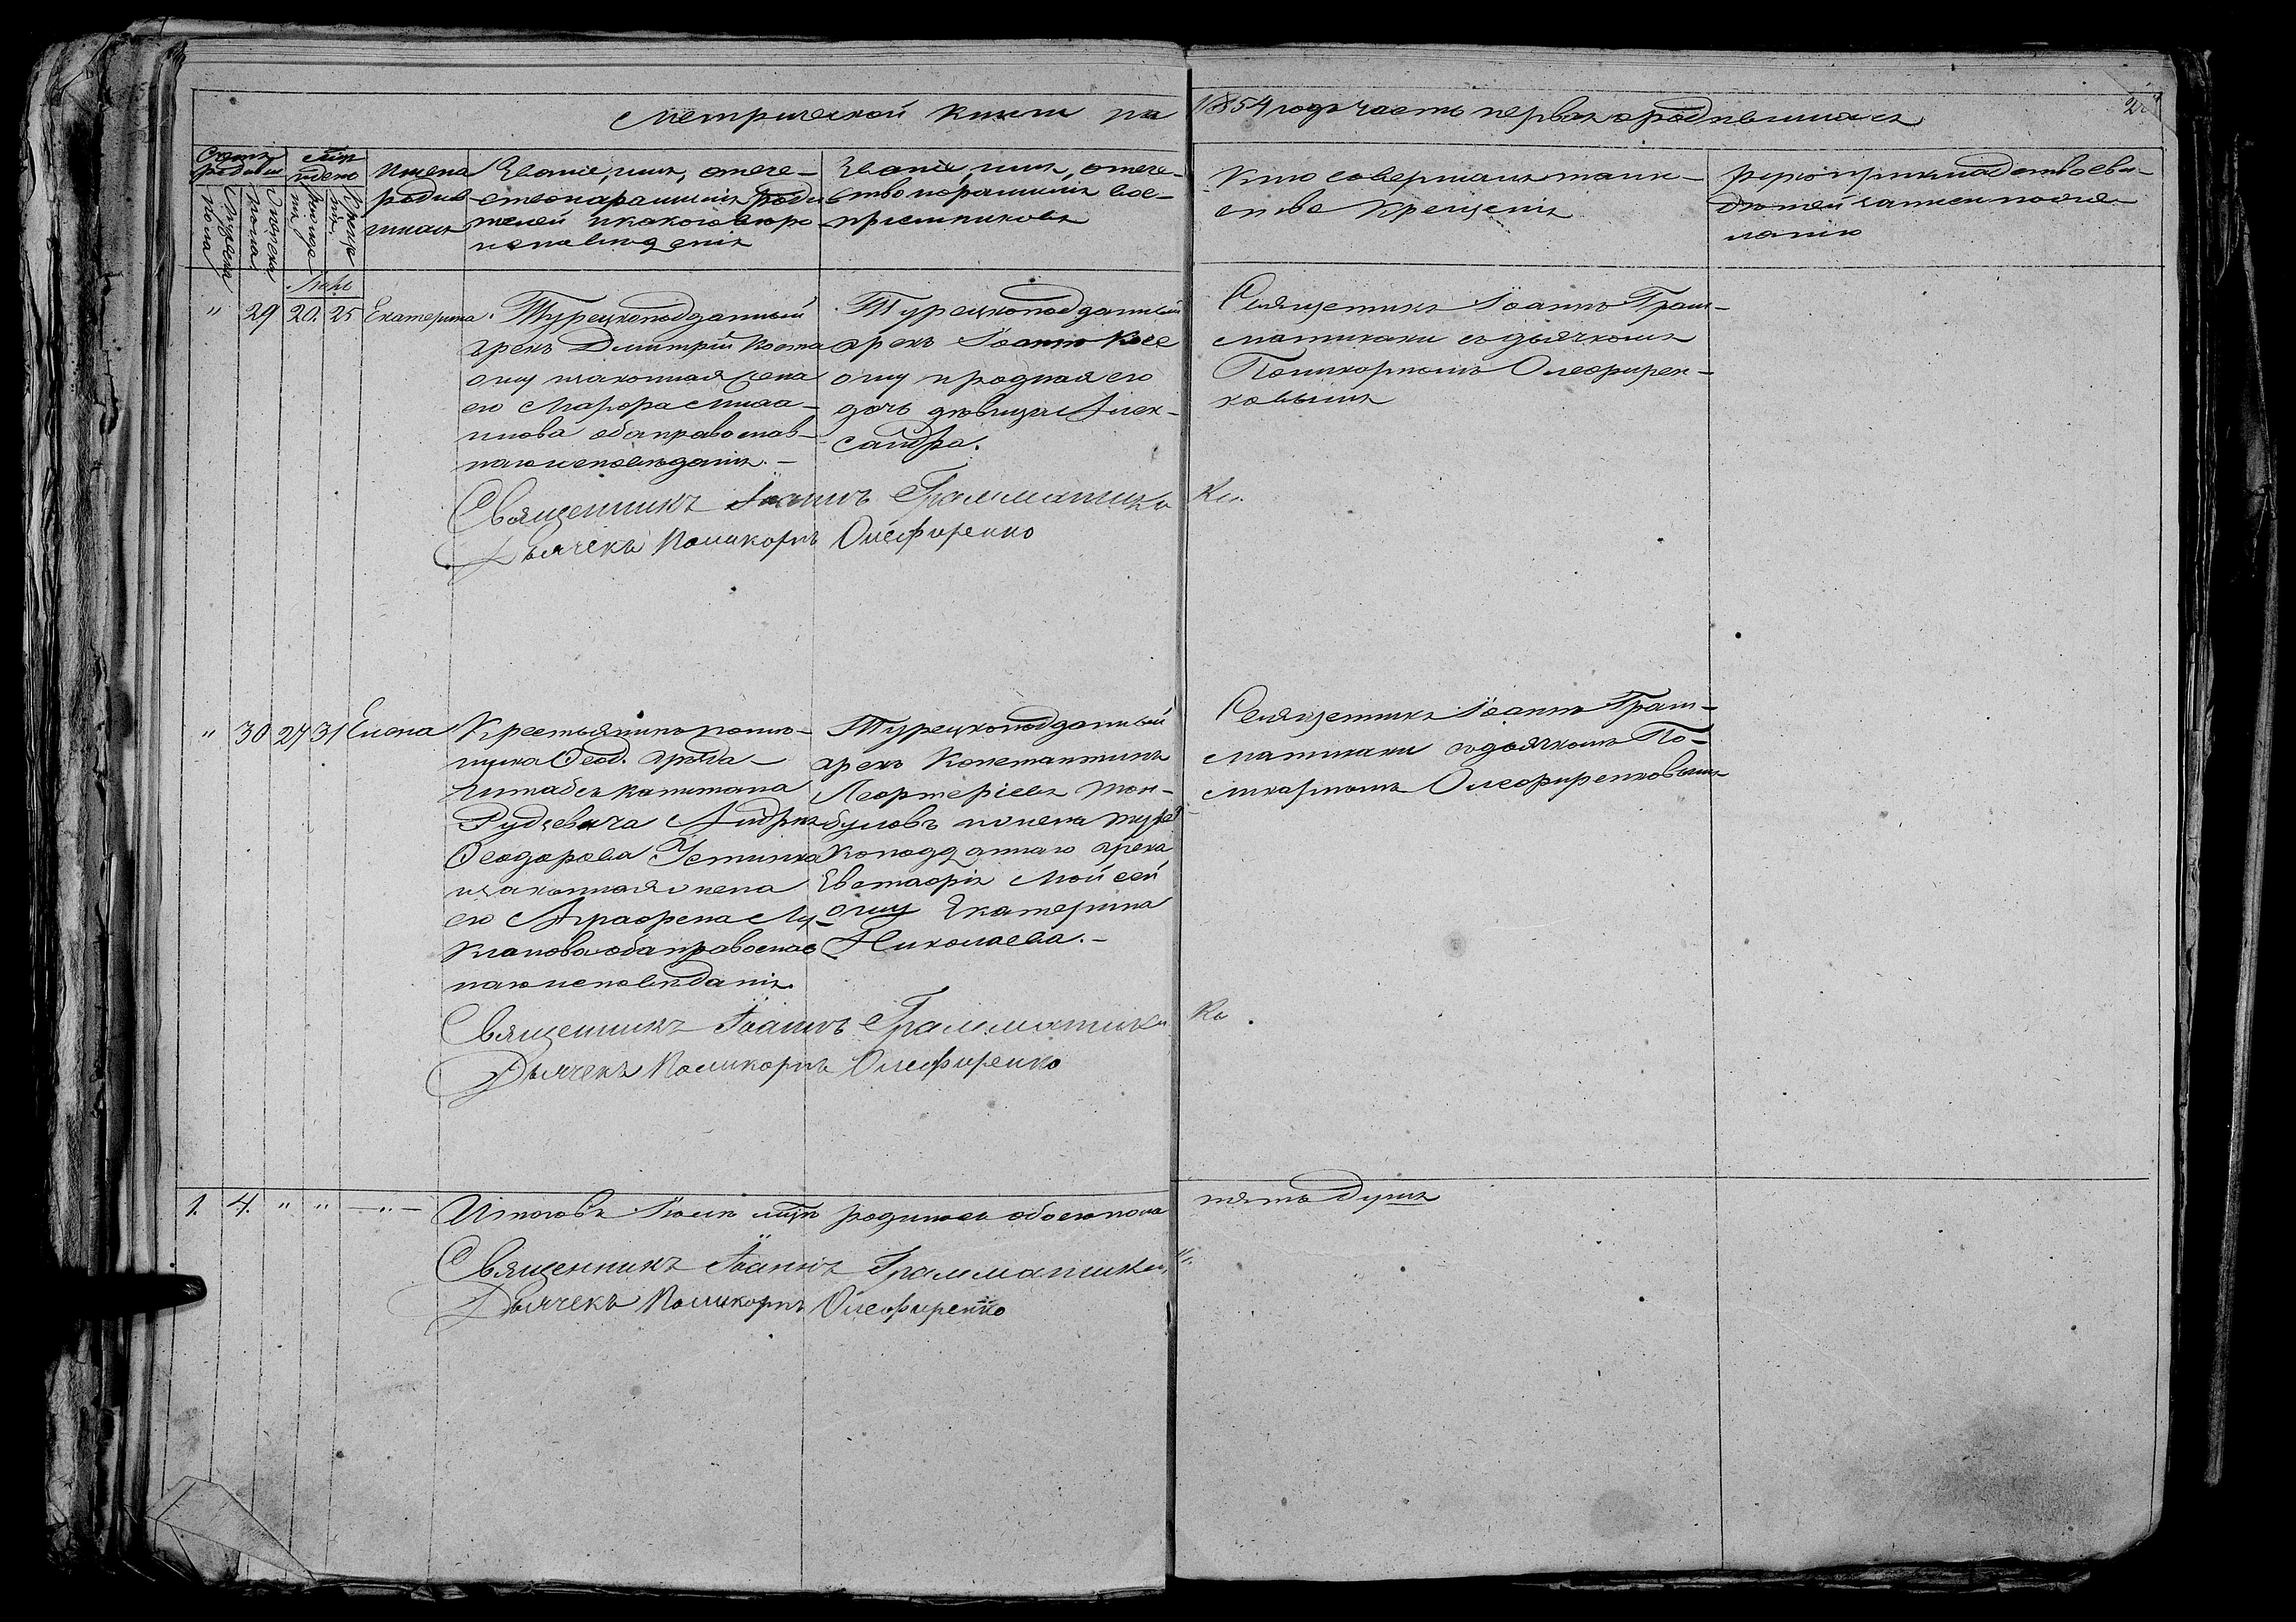 Метрической книги на 1854 годъ часть первая о родившихся
Счетъ родивш
Мужска пола
Женска пола
рожде-
Креще-
Имена родив-
шихся
Званіе, имя, отече-
ство и фамилія роди
телей и какого вѣро
исповѣданія
Званіе, имя, отече-
ство и фамилія вос-
пріемниковъ
Кто совершалъ таин-
ство крещенія
Рукоприкладство сви-
дѣтелей записи по же-
ланію
Іюль
" 29 20. 25 Екатерина.
Турецкоподданный
грекъ Дмитрій Коста
оглу и законная жена
его Марфа
обаправослав-
наго исповѣданія.-
Турецкоподданный
грекъ Іоаннъ
оглу и родная его
дочь дѣвица Алек-
сандра.
Священникъ Іоаннъ Грам-
матикаки съ дьячкомъ
Поликарпомъ Олефирен-
ковымъ
Священникъ Іоаннъ Грамматикаки.
Дьячекъ Поликарпъ Олефиренко
" 30 27 31 Елена
Крестьянинъ помѣ-
щика Ѳеод.
Штабсъ капитана
Рудзевича Андрей
Ѳеодоровъ Устинка
и законная жена
его Аграфена Лу-
кіанова оба православ
наго исповѣданія.
Турецкоподданный
грекъ Константинъ
и жена турец
коподданнаго грека
Евстафія Мойсей
оглу Екатерина
Николаева.-
Священникъ Іоаннъ Грам-
матикаки съ дьячкомъ По-
ликарпомъ Олефиренковымъ
Священникъ Іоаннъ Грамматикаки.
Дьячекъ Поликарпъ Олефиренко
1. 4. " " -"- Итого въ Іюлѣ мцѣ родилось обоего пола пять душъ
Священникъ Іоаннъ Грамматикаки.
Дьячекъ Поликарпъ Олефиренко